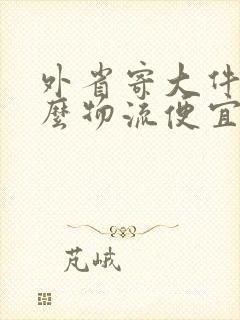 外省寄大件
麼物流便宜
芃峨